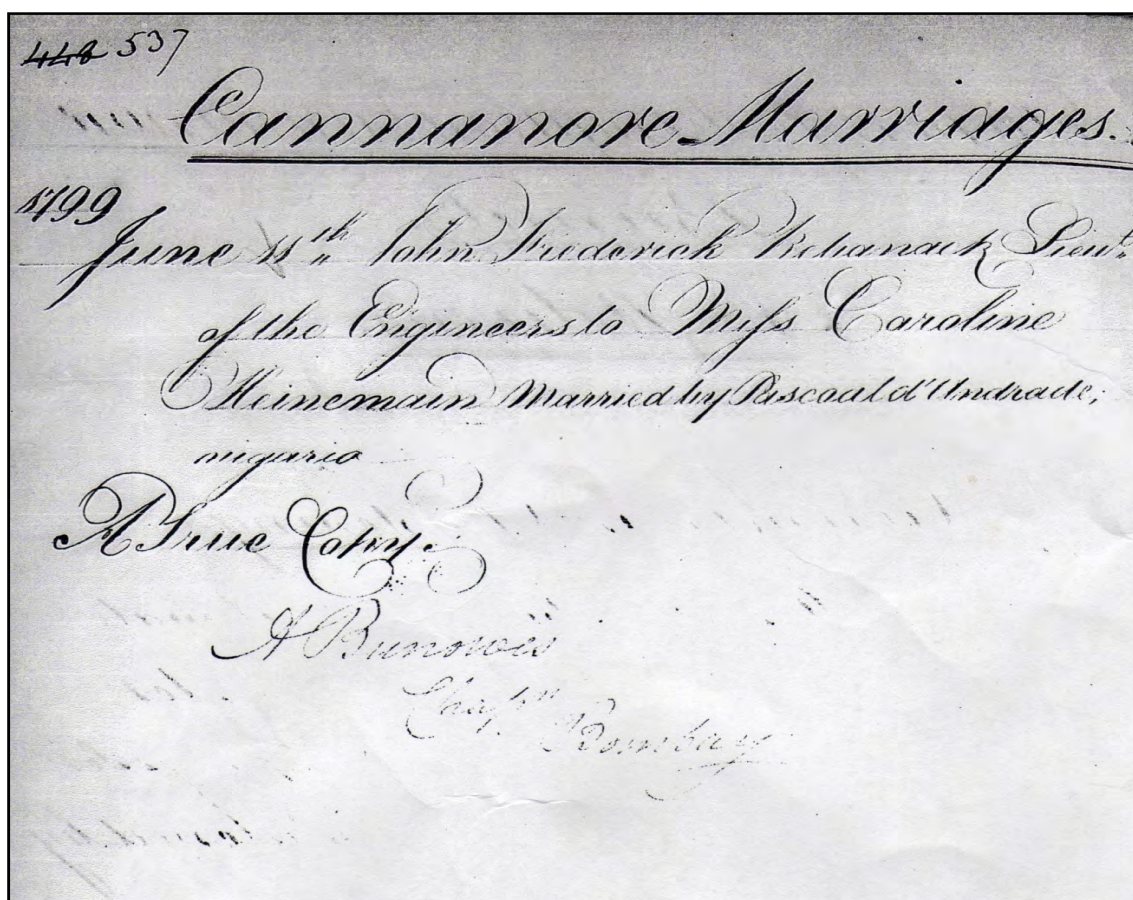 448 537
Cannanore Marriages.
1799
June 11th John Frederick Lieut
of the Engineers to Miss Caroline
Heinemain Married by Pascoal d'Andrade,
A True Copy
A
Chapn Bombay